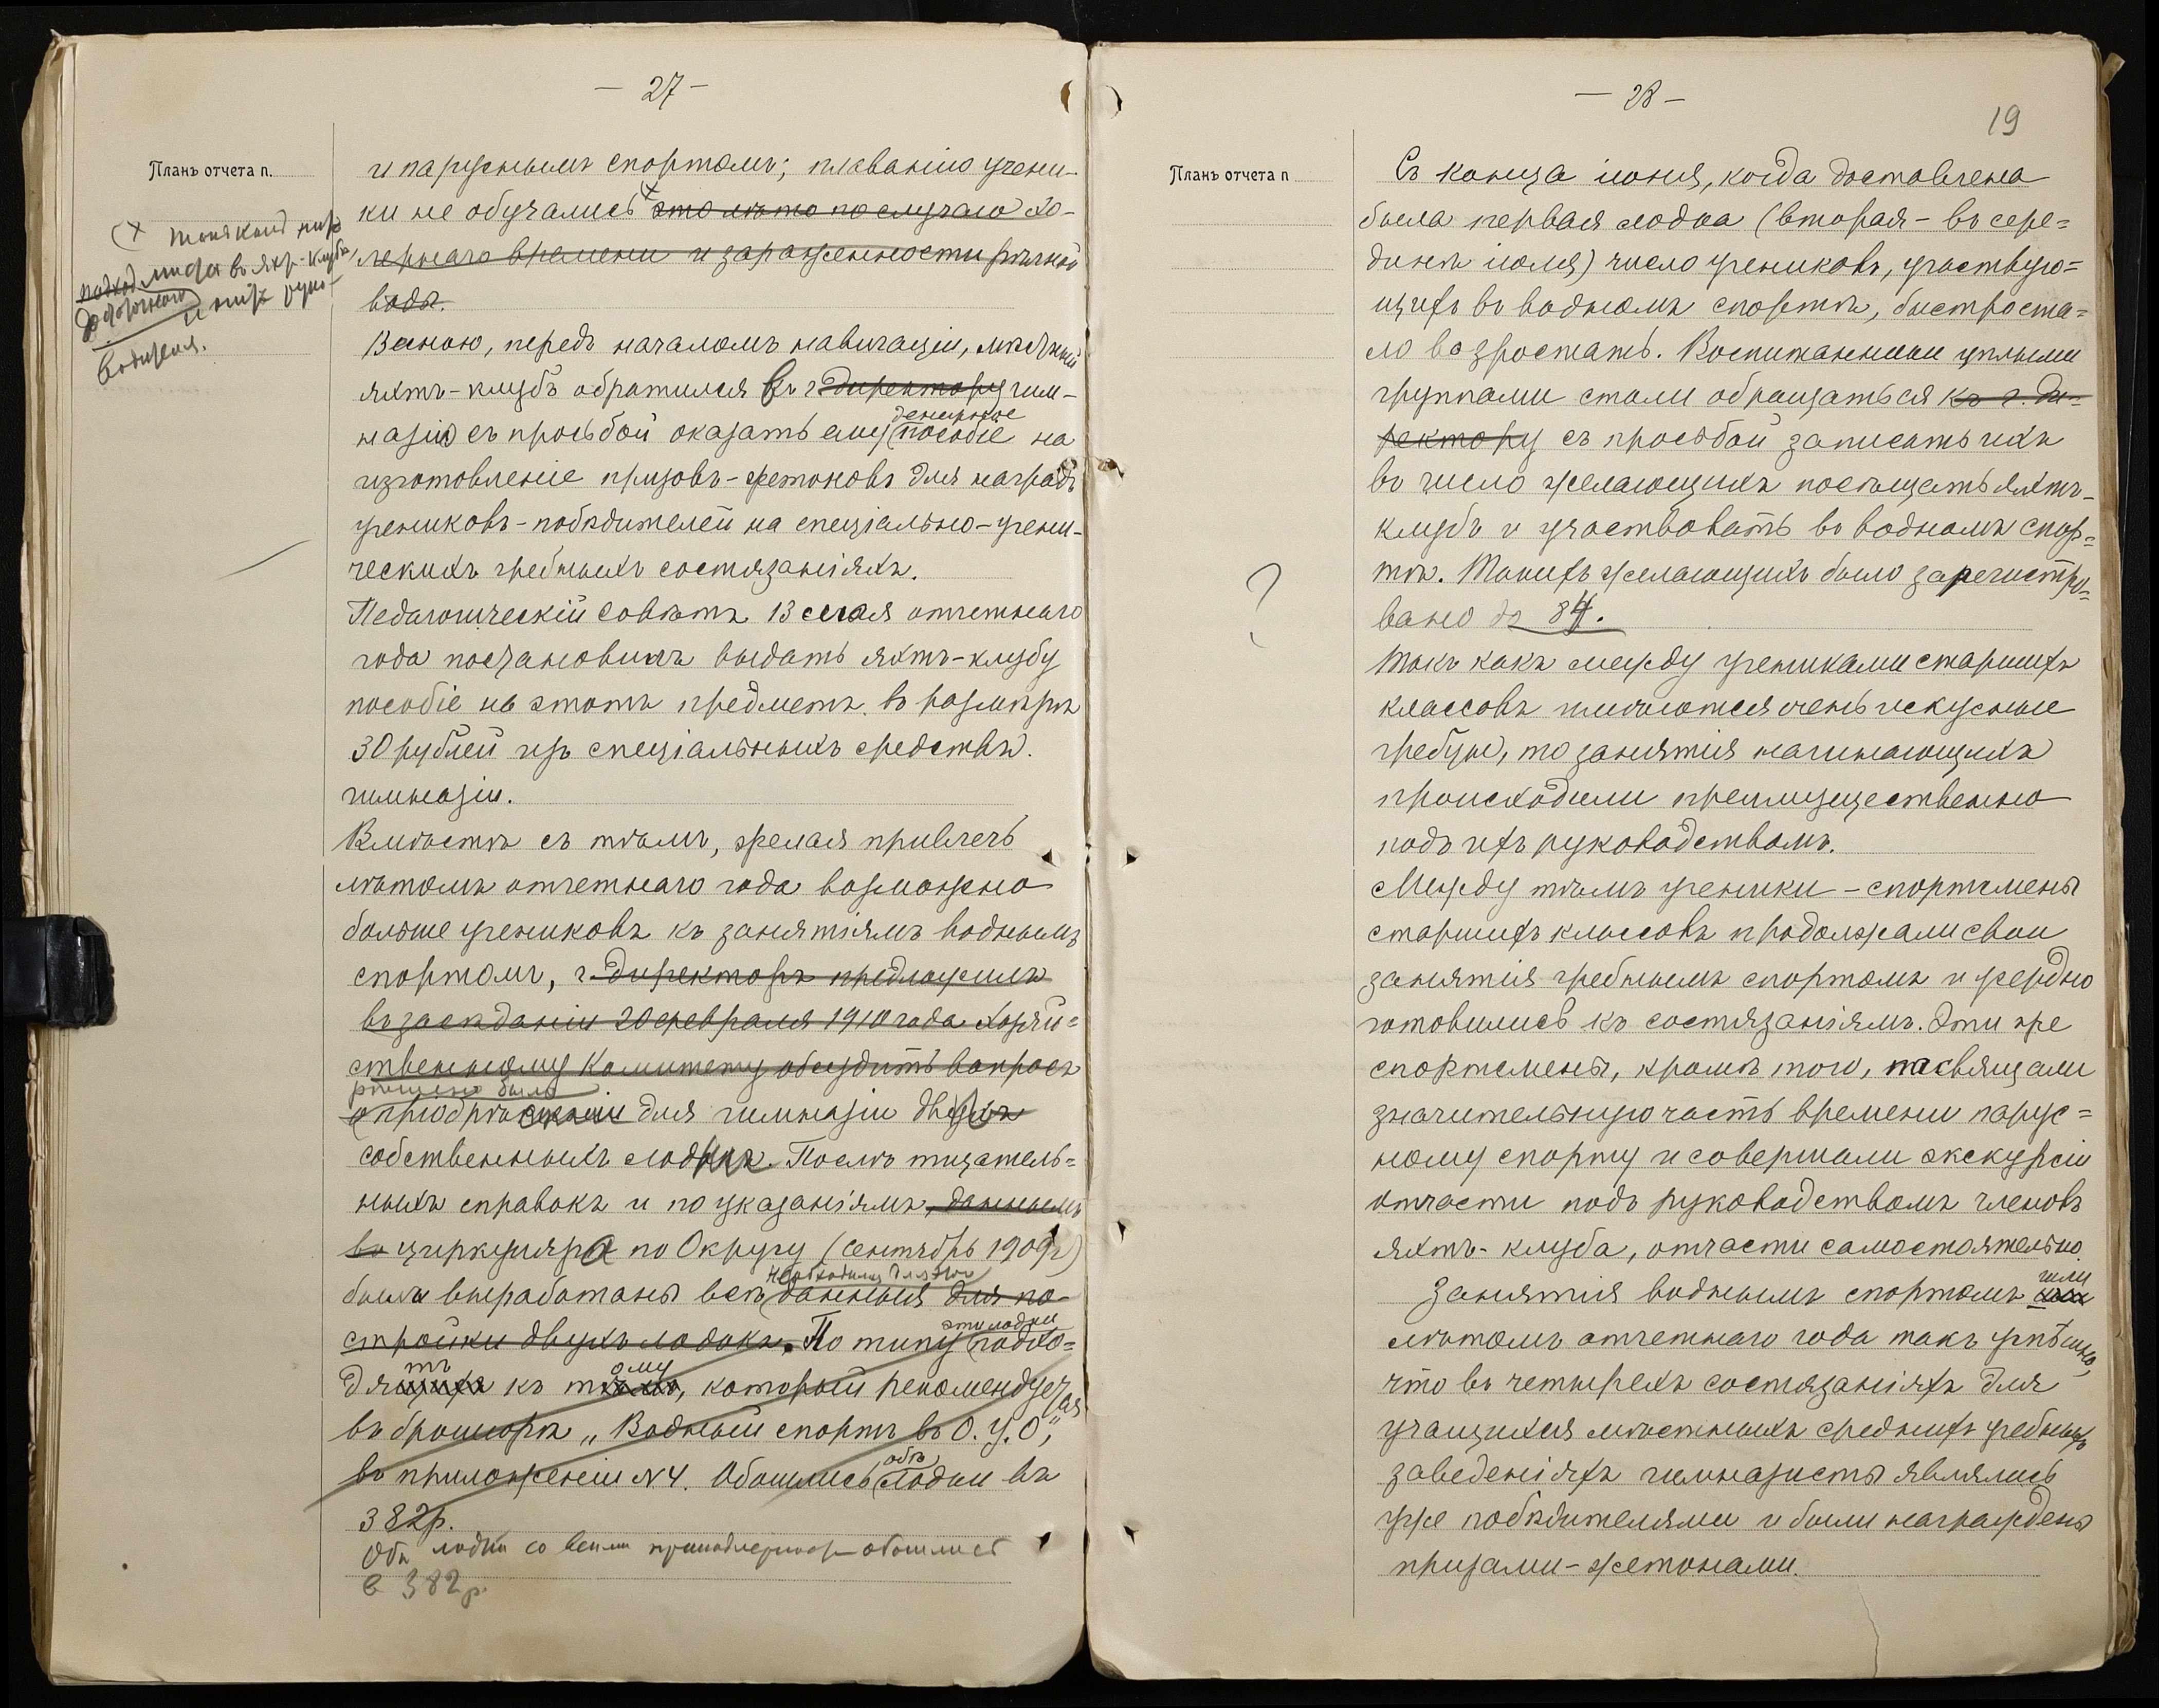 — 27 —
Планъ отчета п.
и паруснымъ спортомъ; плаванію учени-
ки не обучались это лѣто по случаю хо-
лернаго времени и зараженности рѣчной
воды.
(х
подход
мѣста въ яхт-клубѣ
водителя.
Весною, передъ началомъ навигаціи, мѣстный
яхтъ-клубъ обратился въ г. директору гим-
назію съ просьбой оказать ему денежное пособіе на
изготовленіе призовъ-жетоновъ для наградъ
учениковъ-побѣдителей на спеціально-учени-
ческихъ гребныхъ состязаніяхъ.
Педагогическій Совѣтъ 13 мая отчетнаго
года постановилъ выдать яхтъ-клубу
пособіе на этотъ предметъ въ размѣрѣ
30 рублей изъ спеціальныхъ средствъ
гимназіи.
Вмѣстѣ съ тѣмъ, желая привлечь
лѣтомъ отчетнаго года возможно
больше учениковъ къ занятіямъ воднымъ
спортомъ, г. директоръ предложилъ
въ засѣданіи 20 февраля 1910 года Хозяй=
ственному Комитету обсудить вопросъ
рѣшено было
о пріобрѣтеніи для гимназіи двухъ
собственныхъ лодокъ. Послѣ тщатель=
ныхъ справокъ и по указаніямъ, даннымъ
въ циркуляра по Округу (сентябрь 1909 г.)
необходимыя для этого
были выработаны всѣ данныя для по-
стройки двухъ лодокъ. По типу эти лодки подхо=
дятъ къ тому, который рекомендуется
въ брошюрѣ „Водный спортъ въ О. У. О.",
въ приложеніи № 4. Обошлись обѣ лодки въ
382 р.
Обѣ лодки со всѣми принадлежност. обошлись
в 382 р.
— 28 —
19
Планъ отчета п
Съ конца іюня, когда доставлена
была первая лодка (вторая - въ сере=
динѣ іюля) число учениковъ, участвую=
щихъ въ водномъ спортѣ, быстро ста=
ло возростать. Воспитанники цѣлыми
группами стали обращаться къ г. Ди=
ректору съ просьбой записать ихъ
въ число желающихъ посѣщать яхтъ-
клубъ и участвовать въ водномъ спор=
тѣ. Такихъ желающихъ было зарегистри=
вано до 84.
?
Такъ какъ между учениками старшихъ
классовъ имѣются очень искусные
гребцы, то занятія начинающихъ
происходили преимущественно
подъ ихъ руководствомъ.
Между тѣмъ ученики - спортсмены
старшихъ классовъ продолжали свои
занятія гребнымъ спортомъ и усердно
готовились къ состязаніямъ. Эти же
спортсмены, кромѣ того, посвящали
значительную часть времени парус=
ному спорту и совершали экскурсіи
отчасти подъ руководствомъ членовъ
яхтъ-клуба, отчасти самостоятельно.
Занятія воднымъ спортомъ шли
лѣтомъ отчетнаго года такъ успѣшно,
что въ четырехъ состязаніяхъ для
учащихся мѣстныхъ среднихъ учебныхъ
заведеніяхъ гимназисты являлись
уже побѣдителями и были награждены
призами-жетонами.